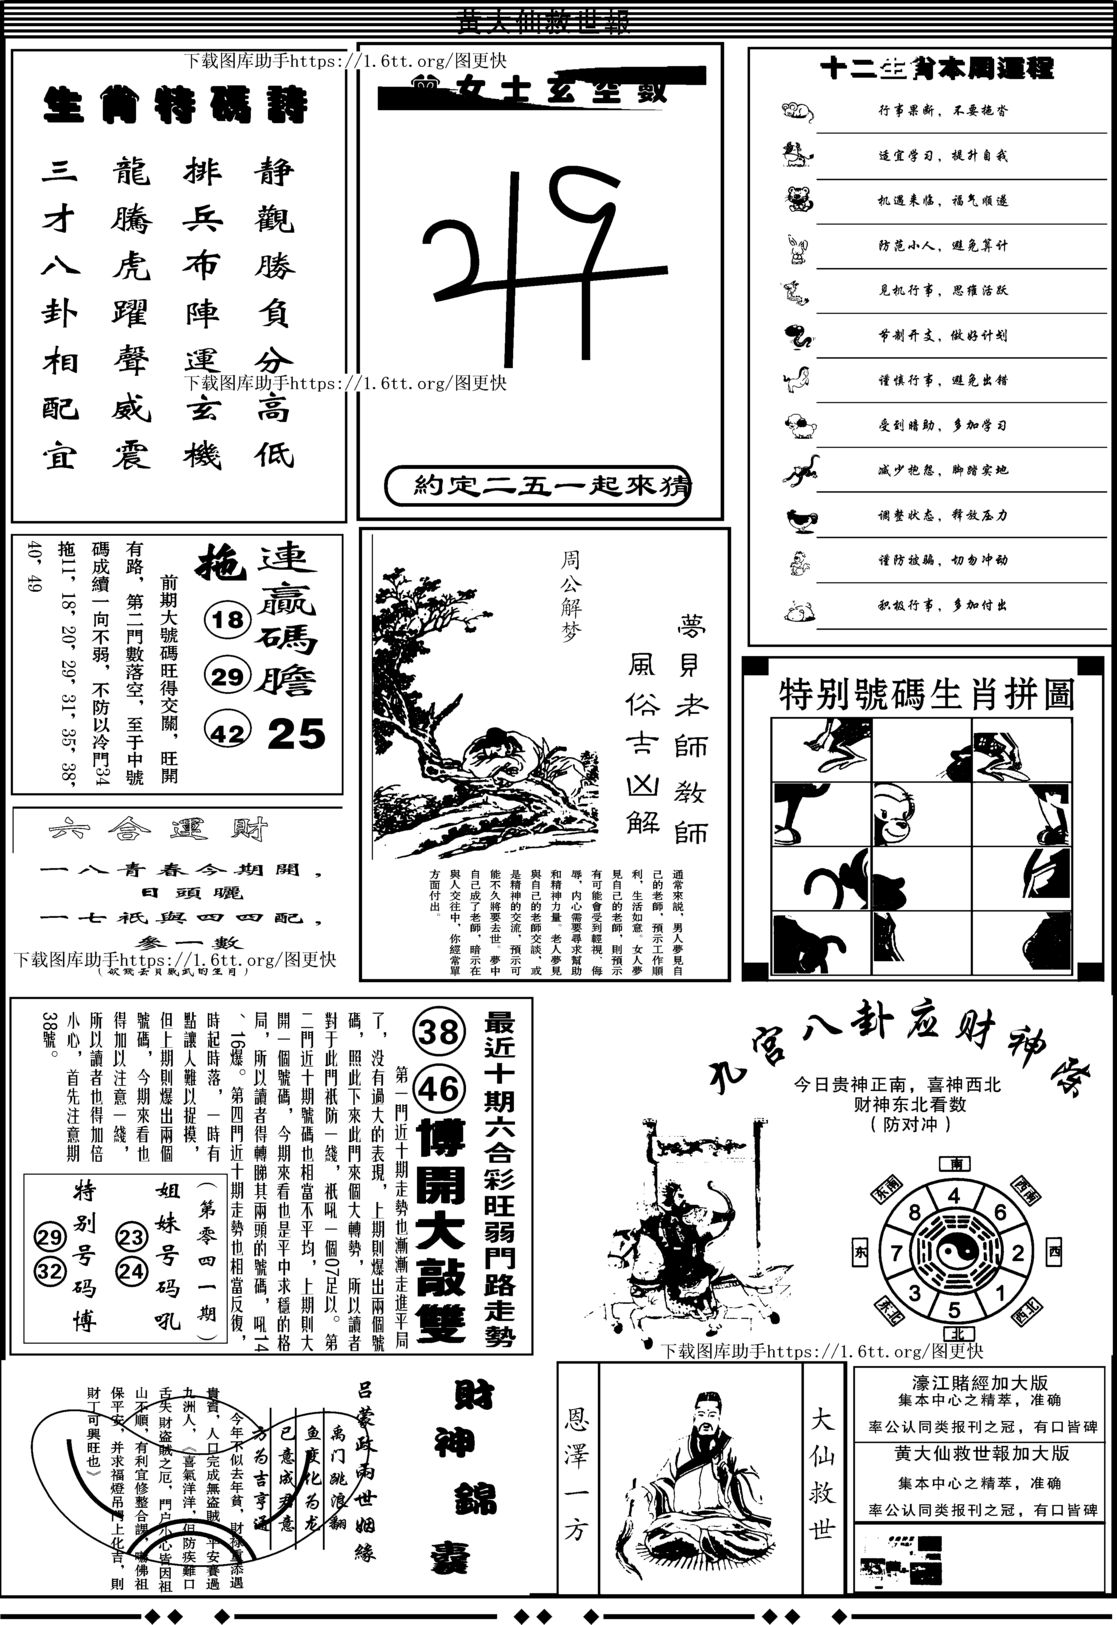 黄大仙救世報
下载图库助手https://1.6tt.org/图更快
生肖特碼詩
静觀勝負分高低
排兵布陣運玄機
龍騰虎躍聲威震
三才八卦相配宜
下载图库助手https://1.6tt.org/图更快
曾女士玄空數
約定二五一起來猜
十二生肖本周運程
行事果断，不要拖沓
适宜学习，提升自我
机遇来临，福气顺遂
防范小人，避免算计
见机行事，思维活跃
节制开支，做好计划
谨慎行事，避免出错
受到暗助，多加学习
减少抱怨，脚踏实地
调整状态，释放压力
谨防被骗，切勿冲动
积极行事，多加付出
連贏碼膽 25
拖 18 29 42
前期大號碼旺得交關，旺開
有路，第二門數落空，至于中號
碼成續一向不弱，不防以冷門34
拖11，18，20，29，31，35，38，
40，49
周公解梦
夢見老師教師
風俗吉凶解
通常來説，男人夢見自
己的老師，預示工作順
利，生活如意。女人夢
見自己的老師，則預示
有可能會受到輕視、侮
辱，内心需要尋求幫助
和精神力量。老人夢見
與自己的老師交談，或
是精神的交流，預示可
能不久將要去世。夢中
自己成了老師，暗示在
與人交往中，你經常單
方面付出。
特别號碼生肖拼圖
六合運財
一八青春今期開，
日頭曬
一七祇與四四配，
參一數
下载图库助手https://1.6tt.org/图更快
最近十期六合彩旺弱門路走勢
38 46 博開大敲雙
第一門近十期走勢也漸漸走進平局
了，没有過大的表現，上期則爆出兩個號
碼，照此下來此門來個大轉勢，所以讀者
對于此門祇防一綫，祇吼一個07足以。第
二門近十期號碼也相當不平均，上期則大
開一個號碼，今期來看也是平中求穩的格
局，所以讀者得轉睇其兩頭的號碼，吼14
、16爆。第四門近十期走勢也相當反復，
時起時落，一時有
點讓人難以捉摸，
但上期則爆出兩個
號碼，今期來看也
得加以注意一綫，
所以讀者也得加倍
小心，首先注意期
38號。
（第零四一期）
姐妹号码吼
23 24
特别号码博
29 32
九宫八卦应财神除
今日贵神正南，喜神西北
财神东北看数
（防对冲）
南
东南 西南
4
8 6
东 7 2 西
3 1
5
东北 西北
北
下载图库助手https://1.6tt.org/图更快
財神錦囊
吕蒙政兩世姻緣
禹门跳浪翻
鱼变化为龙
已意成君意
方为吉亨通
今年不似去年貧，財禄重添遇
貴賓，人口完成無盜賊，平安賽過
九洲人，《喜氣洋洋，但防疾難口
舌失財盜賊之厄，門户小心皆因祖
山不順，有利宜修整合課，嚇佛祖
保平安，并求福燈吊門上化吉，則
財丁可興旺也》
恩澤一方
大仙救世
濠江賭經加大版
集本中心之精萃，准确
率公认同类报刊之冠，有口皆碑
黄大仙救世報加大版
集本中心之精萃，准确
率公认同类报刊之冠，有口皆碑